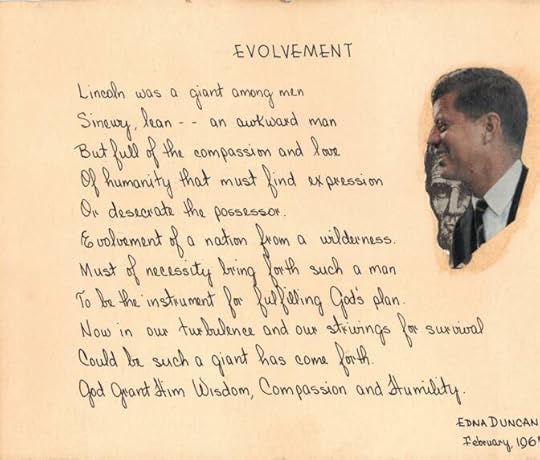 EVOLVEMENT
Lincoln was a giant among men
Sinewy, lean -- an awkward man
But full of the compassion and love
Of humanity that must find expression
Or desecrate the possessor.
Evolvement of a nation from a wilderness.
Must of necessity bring forth such a man
To be the instrument for fulfilling God's plan.
Now in our turbulence and our strivings for survival
Could be such a giant has come forth.
God Grant Him Wisdom, Compassion and Humility.
EDNA DUNCAN
February,